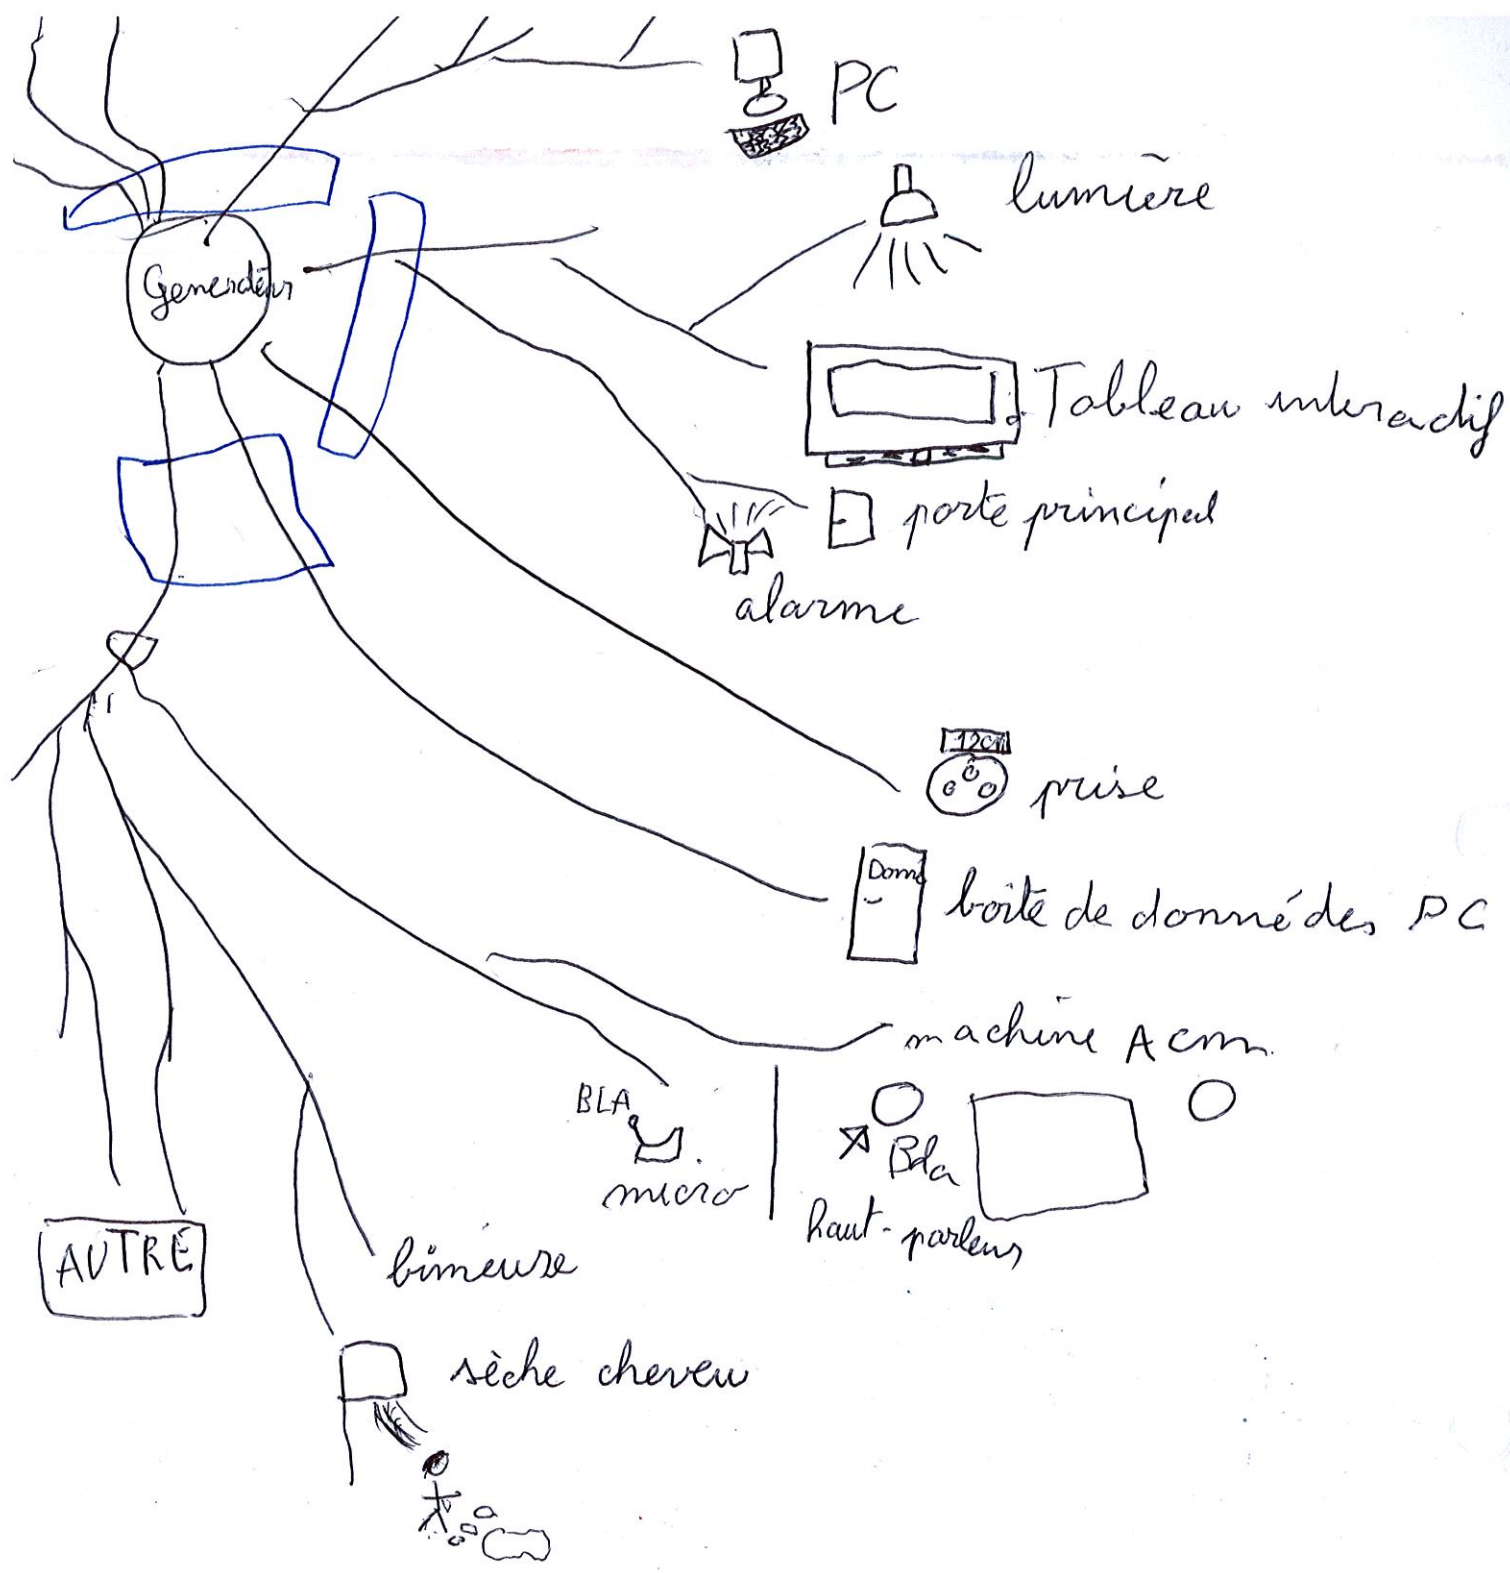 PC
lumière
Generateur
Tableau interactif
porte principal
alarme
prise
Donné
boîte de donné des PC
machine A
BLA
micro
Bla
haut-parleur
AUTRE
sèche cheveu